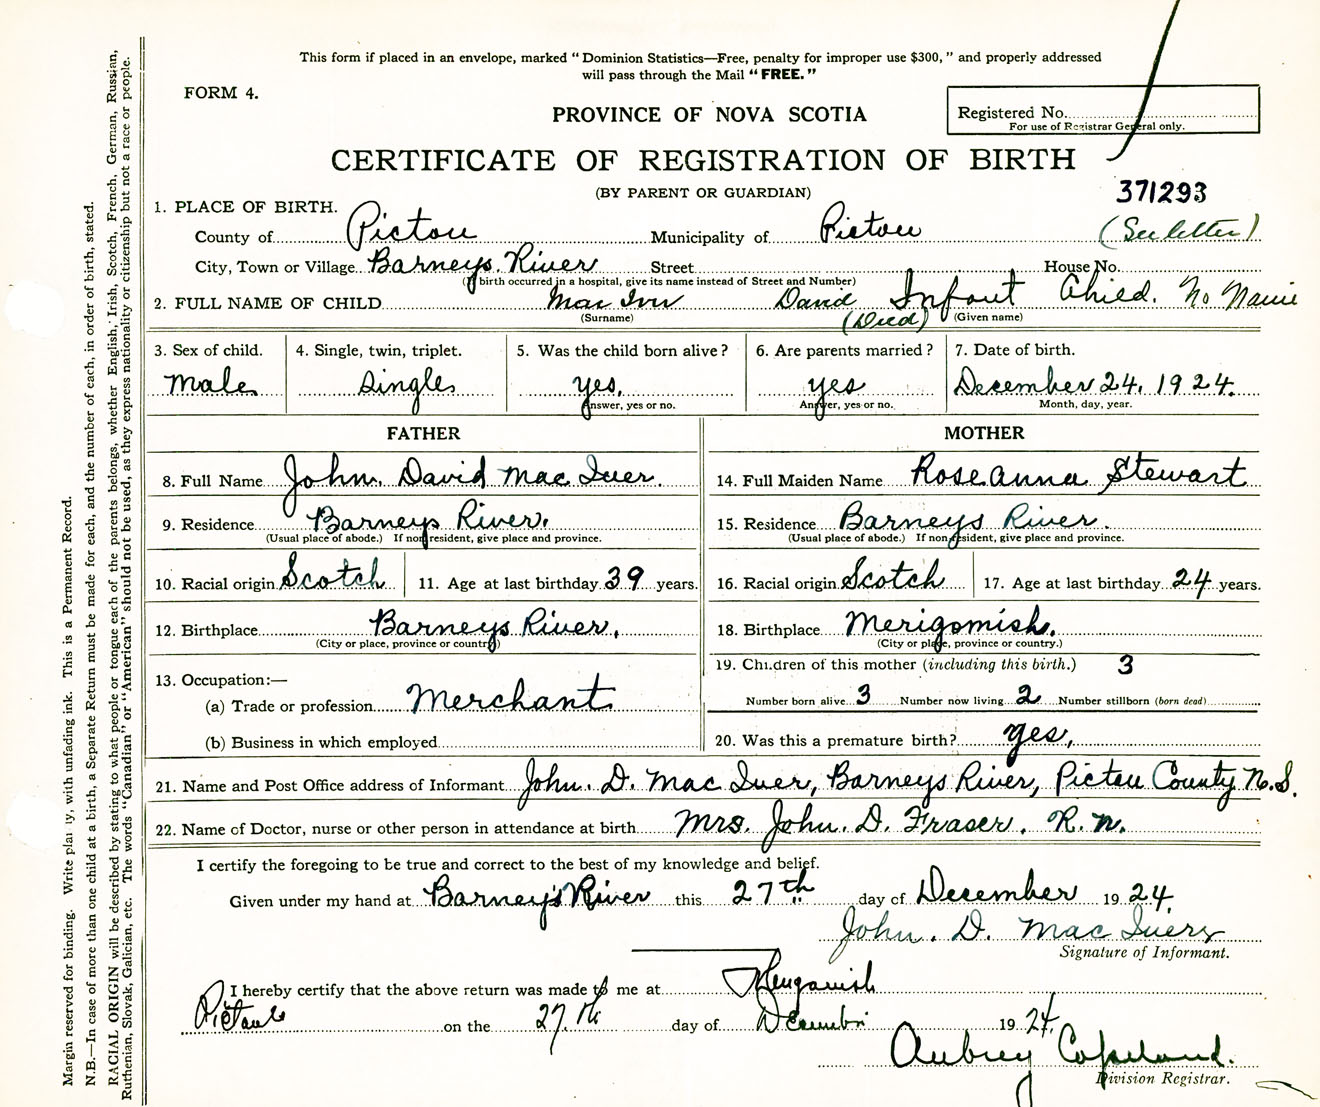 This form if placed in an envelope, marked "Dominion Statistics—Free, penalty for improper use $300," and properly addressed
will pass through the Mail "FREE."
FORM 4.
PROVINCE OF NOVA SCOTIA
Registered No.
For use of Registrar General only.
CERTIFICATE OF REGISTRATION OF BIRTH
(BY PARENT OR GUARDIAN)
371293
1. PLACE OF BIRTH.
County of Pictou Municipality of Pictou (See letter)
City, Town or Village Barneys River Street House No.
(If birth occurred in a hospital, give its name instead of Street and Number)
2. FULL NAME OF CHILD Mac Iver David Infant Child. No Name
(Surname) (Died) (Given name)
3. Sex of child. 4. Single, twin, triplet. 5. Was the child born alive? 6. Are parents married? 7. Date of birth.
Male Single yes. yes December 24. 1924.
Answer, yes or no. Answer, yes or no. Month, day, year.
FATHER MOTHER
8. Full Name John. David Mac Iver. 14. Full Maiden Name Roseanna Stewart
9. Residence Barneys River. 15. Residence Barneys River.
(Usual place of abode.) If non resident, give place and province. (Usual place of abode.) If non resident, give place and province.
10. Racial origin Scotch 11. Age at last birthday 39 years. 16. Racial origin Scotch 17. Age at last birthday 24 years.
12. Birthplace Barneys River. 18. Birthplace Merigomish.
(City or place, province or country) (City or place, province or country.)
19. Children of this mother (including this birth.) 3
13. Occupation:—
(a) Trade or profession Merchant Number born alive 3 Number now living 2 Number stillborn (born dead)
(b) Business in which employed 20. Was this a premature birth? yes.
21. Name and Post Office address of Informant John. D. Mac Iver, Barneys River, Pictou County N.S.
22. Name of Doctor, nurse or other person in attendance at birth Mrs. John. D. Fraser. R.N.
I certify the foregoing to be true and correct to the best of my knowledge and belief.
Given under my hand at Barney's River this 27th day of December 1924.
John. D. Mac Iver
Signature of Informant.
I hereby certify that the above return was made to me at
Pictou on the 27.th day of December 1924.
Aubrey Copeland.
Division Registrar.
Margin reserved for binding. Write plainly, with unfading ink. This is a Permanent Record.
N.B.—In case of more than one child at a birth, a Separate Return must be made for each, and the number of each, in order of birth, stated.
RACIAL ORIGIN will be described by stating to what people or tongue each of the parents belongs, whether English, Irish, Scotch, French, German, Russian,
Ruthenian, Slovak, Galician, etc. The words "Canadian" or "American" should not be used, as they express nationality or citizenship but not a race or people.